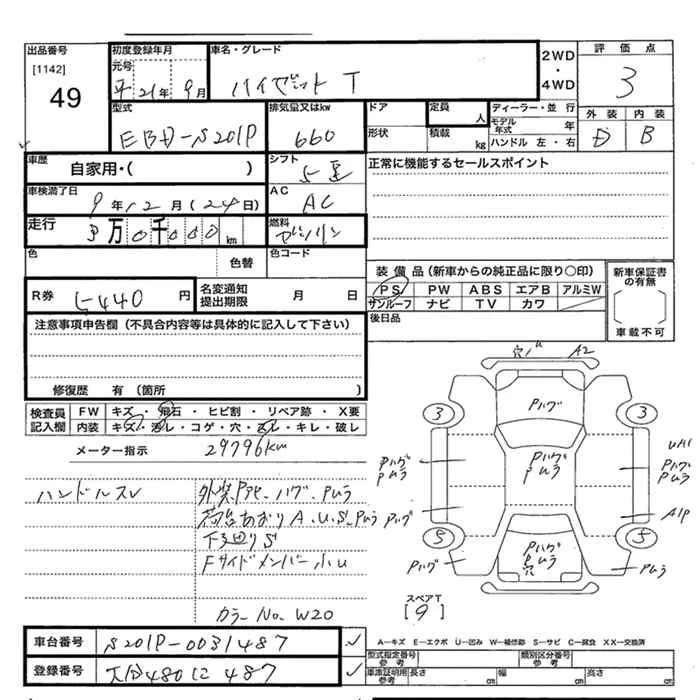 出品番号
[1142]
49
初度登録年月
元号
平21年9月
車名・グレード
ハイゼット T
2WD
・
4WD
評価点
3
型式
EBD-S201P
排気量又はkw
660
ドア
形状
定員
人
積載
kg
ディーラー・並行
モデル年式 年
ハンドル 左・右
外装 内装
D B
車歴
自家用・( )
シフト
5速
正常に機能するセールスポイント
車検満了日
9年12月(24日)
AC
AC
走行
3万0千000km
燃料
ガソリン
色
色替
色コード
装備品(新車からの純正品に限り○印)
PS PW ABS エアB アルミW
サンルーフ ナビ TV カワ
新車保証書の有無
車載不可
R券
円
名変通知
提出期限
月 日
後日品
注意事項申告欄(不具合内容等は具体的に記入して下さい)
修復歴 有(箇所 )
検査員
記入欄
FW キズ・飛石・ヒビ割・リペア跡・X要
内装 キズ・汚レ・コゲ・穴・スレ・キレ・破レ
メーター指示 29796km
ハンドルスレ
外装Pアセ、ハゲ、Pムラ
荷台あおりA.U.S.Pムラ
下廻りS
Fサイドメンバー小U
カラーNo.W20
穴 U A2
Pハゲ
3 3
Pハゲ
Pムラ
Pハゲ
Pムラ
Pハゲ
Pムラ
Pハゲ
A1P
5 5
Pハゲ
Pハゲ
Pムラ
穴
Pムラ
スペアT
[9]
車台番号 S201P-0031487
登録番号
A―キズ E―エクボ U―凹み W―補修跡 S―サビ C―腐食 XX―交換済
型式指定番号
参考
類別区分番号
参考
車庫証明用
参考
長さ cm 幅 cm 高さ cm